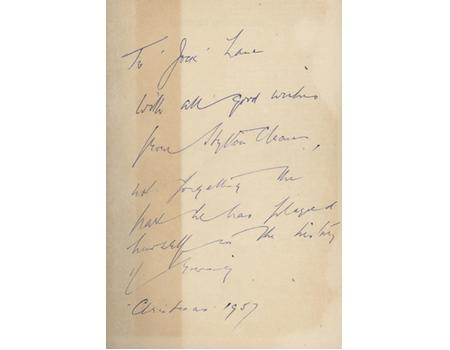 To 'Jock' Lane
with all good wishes
from Hylton Cleaver,
not forgetting the
part he has played
himself in the history
of Rowing.
Christmas 1957